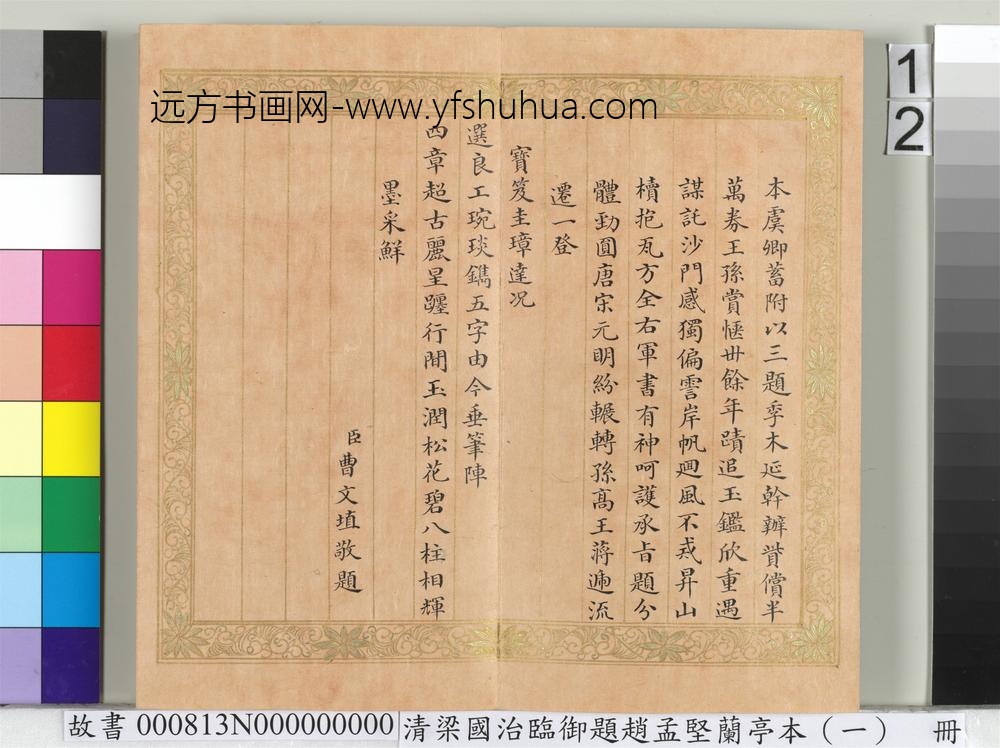 远方书画网-www.yfshuhua.com
1
2
本虞卿蓄附以三題季木延幹辦貲償半
萬券王孫賞愜卅餘年蹟追玉鑑欣重遇
謀託沙門感獨偏霅岸帆迴風不戒昇山
櫝抱瓦方全右軍書有神呵護承旨題分
體勁圓唐宋元明紛輾轉孫高王蔣遞流
遷一登
寶笈圭璋達況
選良工琬琰鐫五字由今垂筆陣
四章超古麗星躔行間玉潤松花碧八柱相輝
墨采鮮
臣曹文埴敬題
故書 000813N000000000 清梁國治臨御題趙孟堅蘭亭本（一） 冊